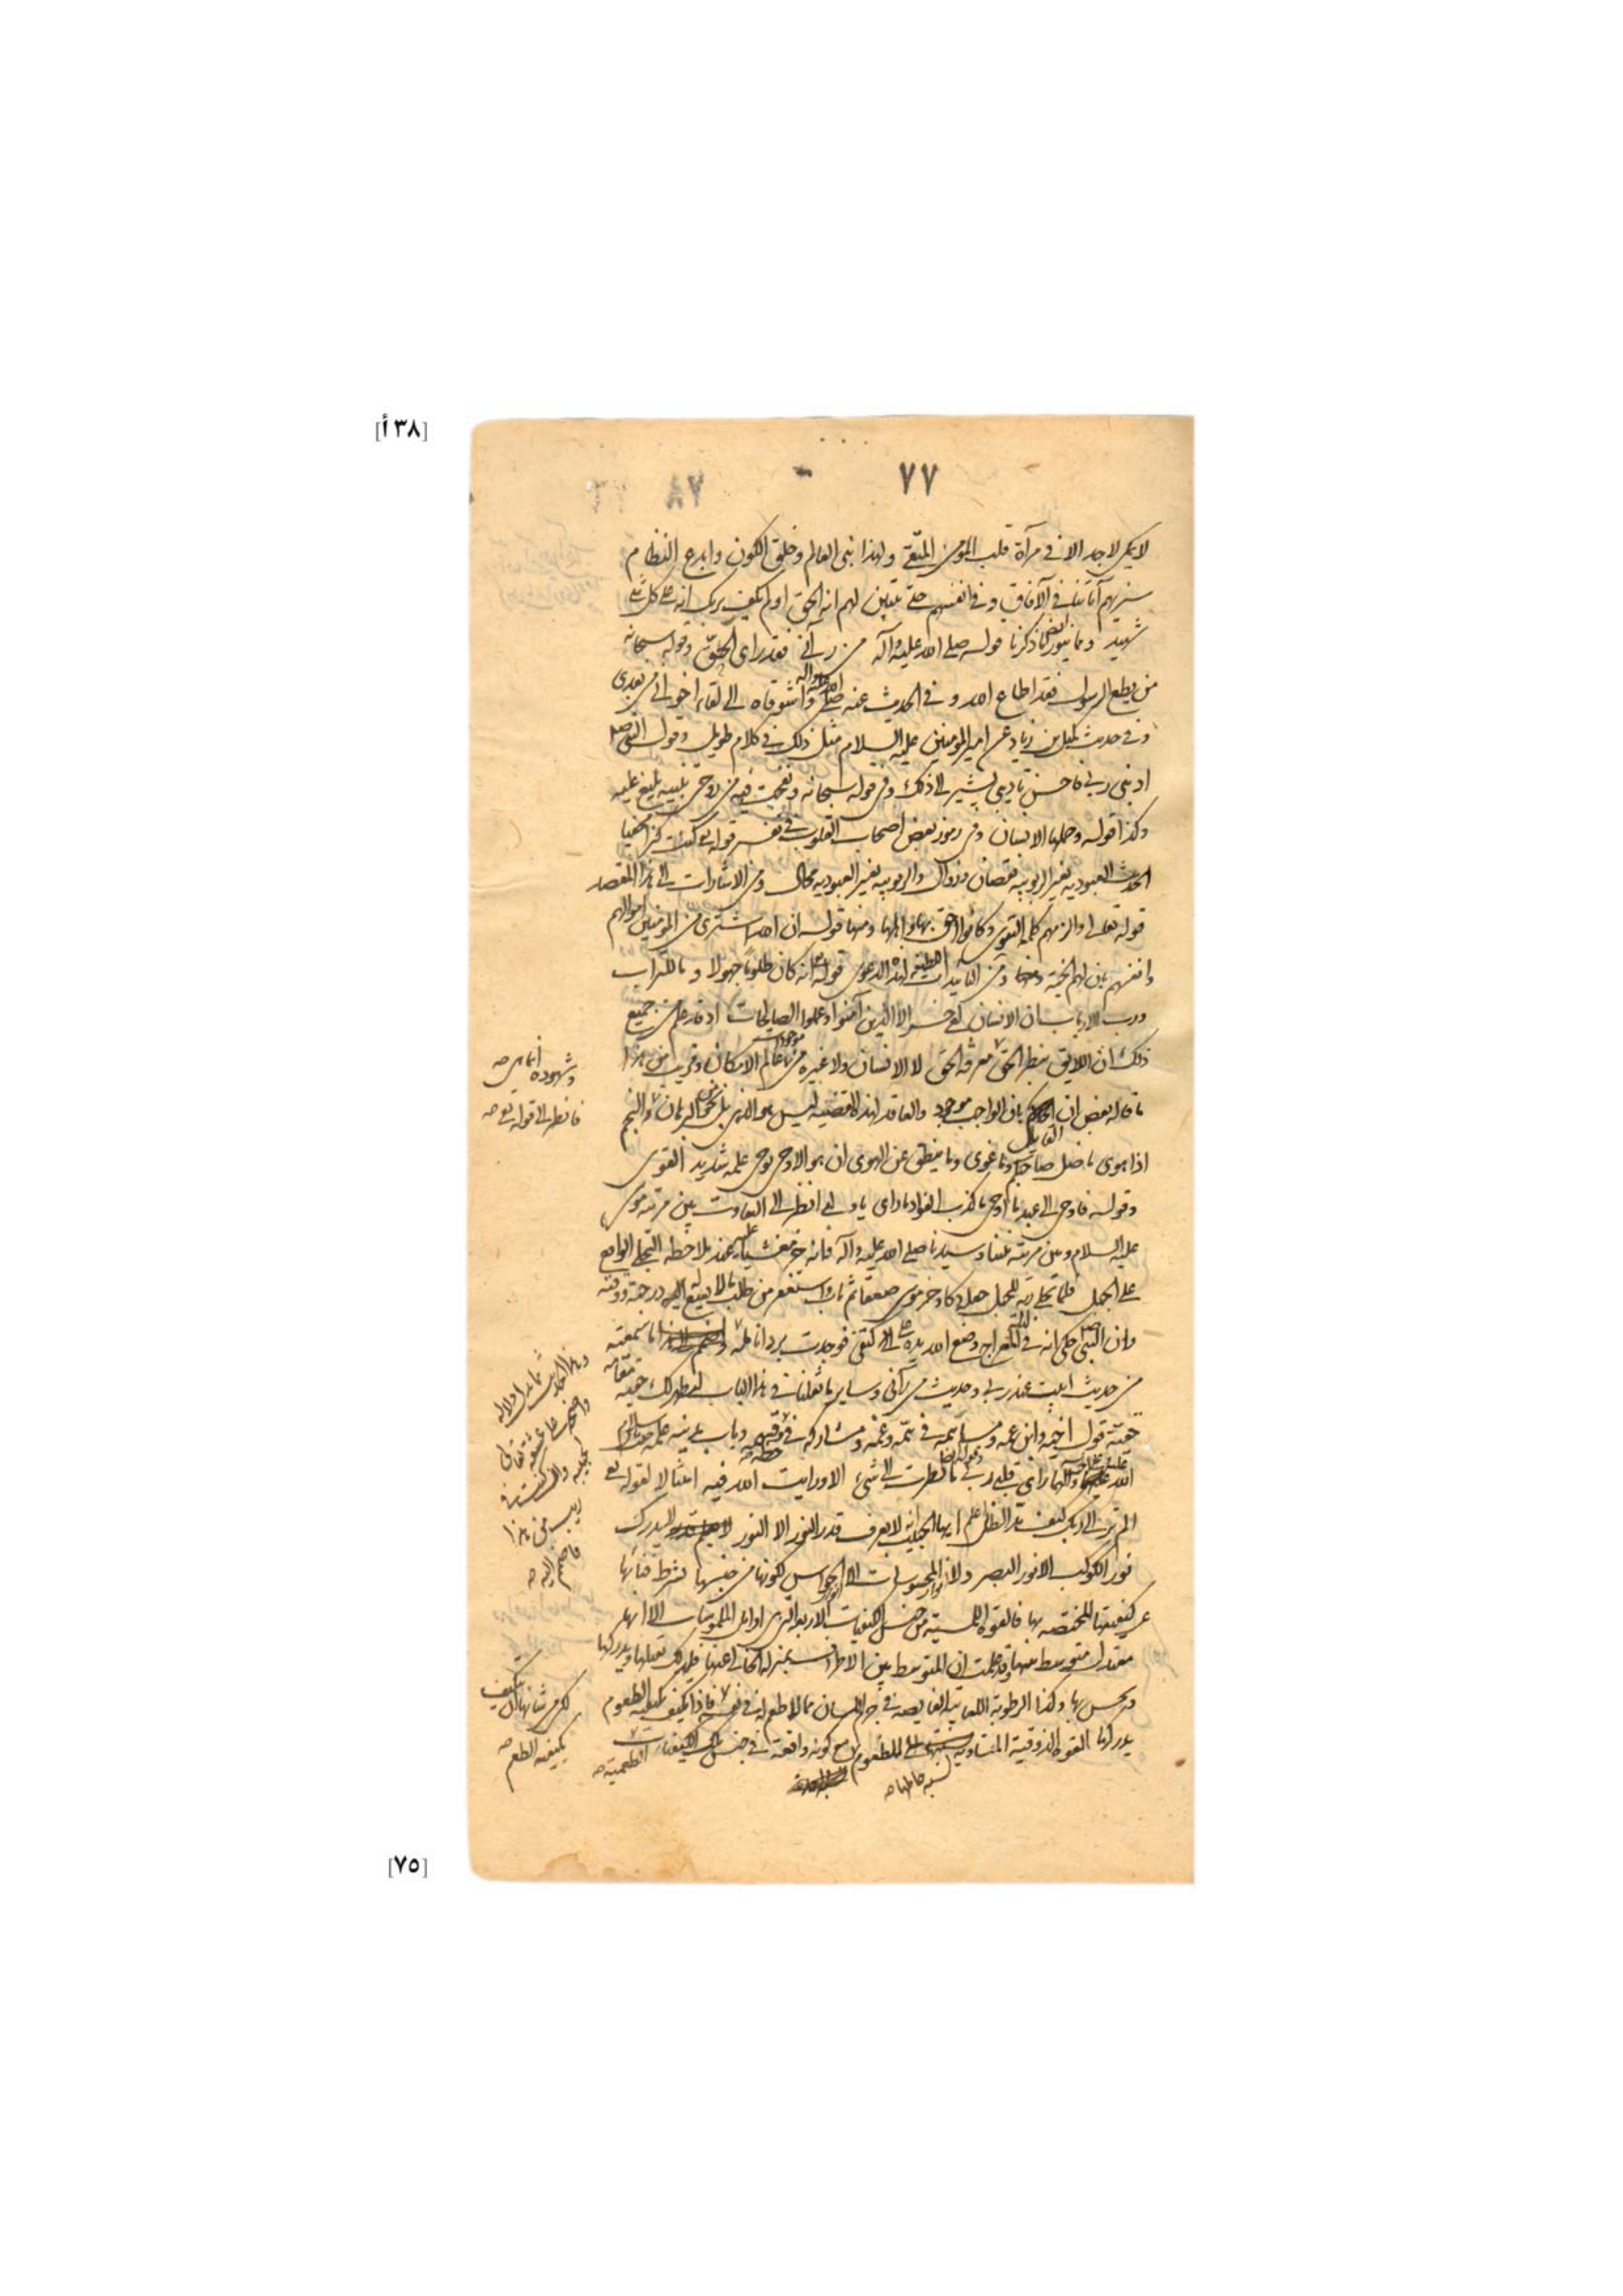 [٣٨ أ]
٧٧
لا يمكن لاحد الا في مرآة قلب المؤمن المتقى ولهذا بنى العالم وخلق الكون وابدع النظام
سنريهم آياتنا في الآفاق وفي انفسهم حتى يتبين لهم انه الحق اولم يكف بربك انه على كل شئ
شهيد ومما ينور ما ذكرنا قوله صلى الله عليه وآله من رآني فقد راى الحق وقوله سبحانه
من يطع الرسول فقد اطاع الله وفي الحديث عنه صلى الله عليه وآله واشوقاه الى لقاء اخوانى من بعدى
وفي حديث كميل بن زياد عن امير المومنين عليه السلام مثل ذلك في كلام طويل وقول النبي ص
ادبنى ربى فاحسن تاديبى يشير الى ذلك وفي قوله سبحانه ونفخت فيه من روحى تنبيه بليغ عليه
وكذا قوله وحملها الانسان وفى رموز بعض اصحاب القلوب في تفسير قوله كنت كنزا مخفيا
الحديث العبودية بغير الربوبية نقصان وزوال والربوبية بغير العبودية محال ومن الاشارات الى هذا المقصد
قوله تعالى والزمهم كلمة التقوى وكانوا احق بها واهلها ومنها قوله ان الله اشترى من المومنين اموالهم
وانفسهم بان لهم الجنة ومن التاييدات لهذه الدعوى قوله انه كان ظلوما جهولا وما للتراب
ورب الارباب ان الانسان لفى خسر الا الذين آمنوا وعملوا الصالحات اذ قد علم من جميع
ذلك ان اللايق بنظر الحق معرفة الحق لا الانسان ولا غيره من موجودات عالم الامكان وقريب من هذا
ما قاله بعض ان القايل بان الواجب موجود والعاقد لهذه القضية ليس هو الذى بل نحو من البرهان والنجم
اذا هوى ما ضل صاحبكم وما غوى وما ينطق عن الهوى ان هو الا وحى يوحى علمه شديد القوى
وقوله فاوحى الى عبده ما اوحى ما كذب الفؤاد ما راى يا ولى انظر الى التفاوت بين مرتبة موسى
عليه السلام وبين مرتبة نبينا وسيدنا صلى الله عليه وآله فانه خر مغشيا عليه عند ملاحظة التجلى الواقع
على الجبل فلما تجلى ربه للجبل جعله دكا وخر موسى صعقا ثم تاب واستغفر من طلب ما لا يبلغ اليه درجته ووقته
وان النبي ص حكى انه في ليلة المعراج وضع الله يده على كتفى فوجدت برد انامله اما سمعته
من حديث ابيت عند ربى وحديث من رآنى وساير ما نقلنا في هذا الباب ليظهر لك حقيقة مقامه
حقية قول اخيه وابن عمه ومساهمه في همه وغمه ومشاركه في ذوقه وباب مدينة علمه
الله عليهما وآلهما راى قلبى ربى وقوله ما نظرت الى شئ الا ورايت الله فيه امتثالا لقوله تعالى
الم تر الى ربك كيف مد الظل علم ايها الحبيب انه لا يعرف قدر النور الا النور لا يدرك
نور الكوكب الا نور البصر ولا انوار المحسوسات الا انوار الحواس لكونها من جنسها بشرط فنائها
عن كيفيتها المختصة بها فالقوة اللمسية من جنس الكيفيات الاربع التى اوايل الملموسات الا انها
معتدل متوسط بينها وقد علمت ان المتوسط بين الاطراف بمنزلة الخالى عنها فلذلك تقبلها ويدركها
ويحس بها وكذا الرطوبة اللعابية الفايضة في جرم اللسان مما لا طعم له في نفسه فاذا تكيف بكيفية الطعوم
يدركها القوة الذوقية المتساوية نسبة حاملها الى الطعوم مع كونه واقعة في جنس تلك الكيفيات الطعمية
وشهوده انما هي صح
فانظر الى قوله تعالى صح
وهذا الحديث مما يدل دلالة
واضحة على عشقه تعالى
لحبيبه وان كنت في
ريب من هذا
فاضمم اليه صح
لكن من شانها ان تكيف
بكيفية الطعم صح
[٧٥]